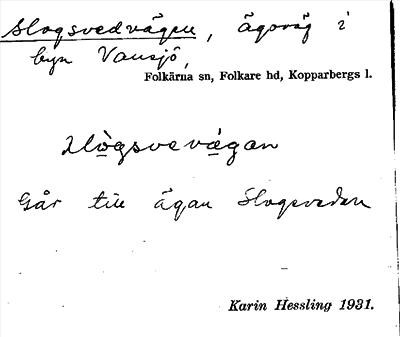 Slogsvedvägen, ägoväg i
byn Vansjö,
Folkärna sn, Folkare hd, Kopparbergs l.
slògsvevägan
Går till ägan Slogsveden
Karin Hessling 1931.